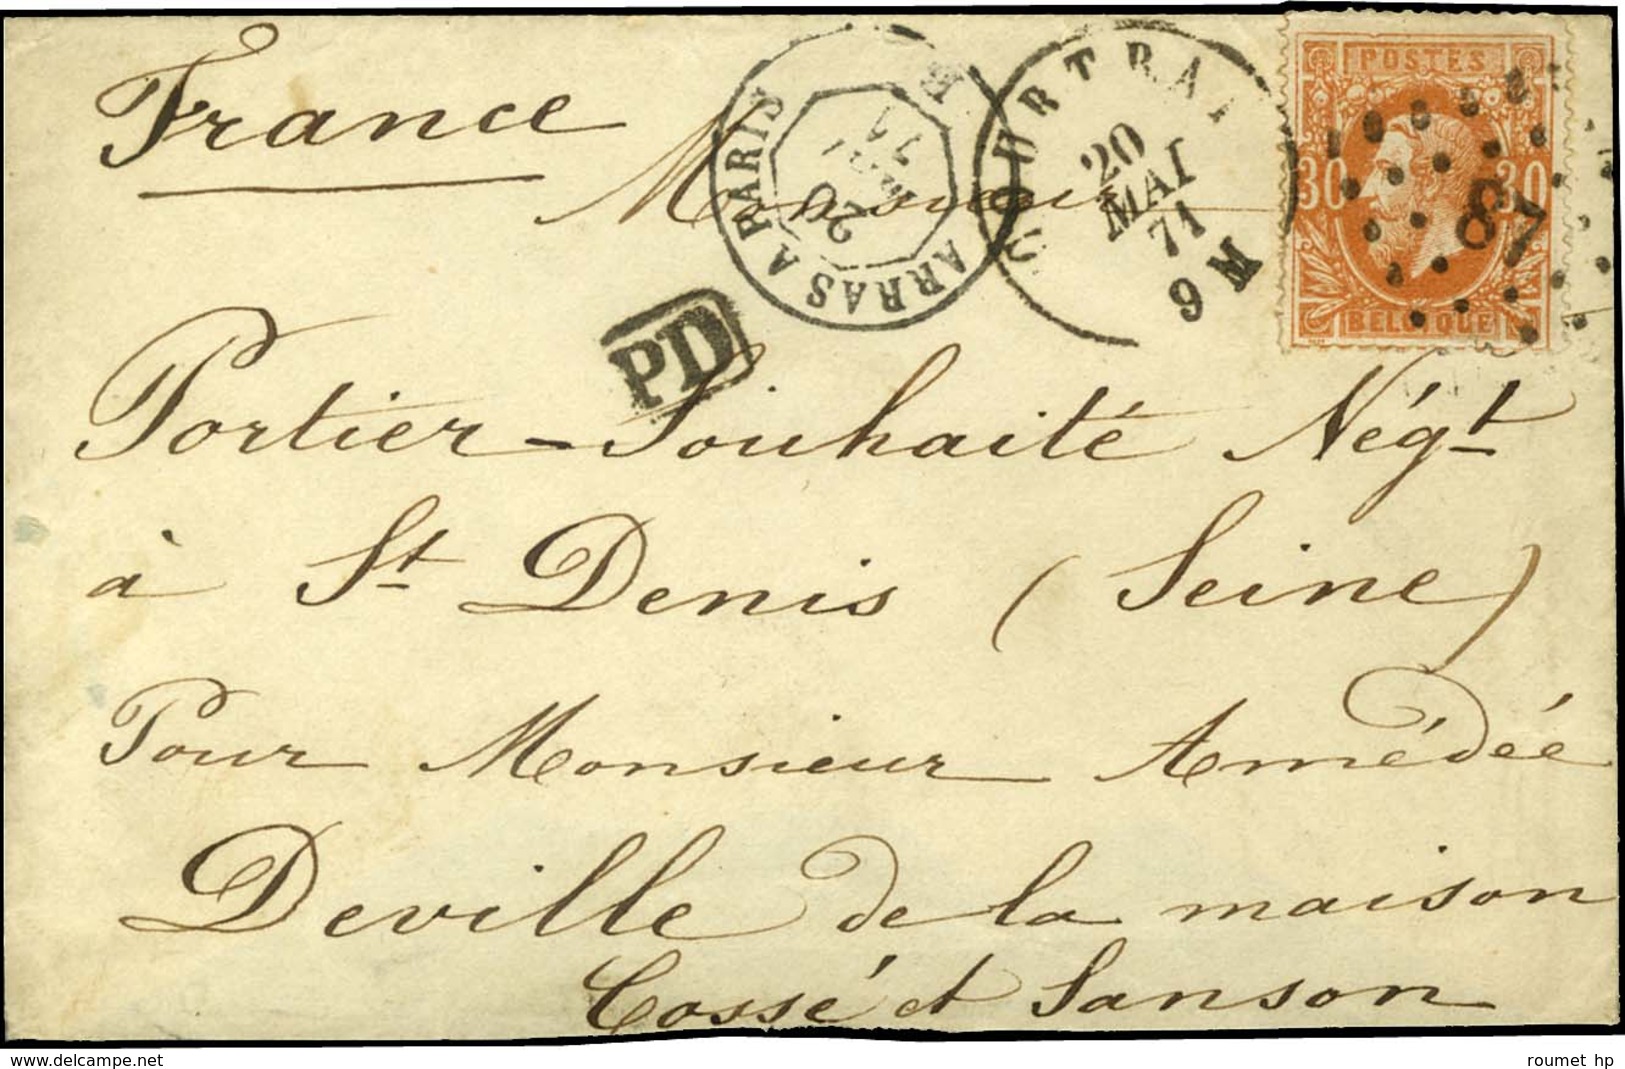 France
ARRAS A PARIS
20
MAI
71
COURTRAI
20
MAI
71
9 M
POSTES
30 30
87
BELGIQUE
PD
Monsieur
Portier-Souhaité Nég.t
à St Denis (Seine)
Pour Monsieur Amédée
Deville de la maison
Cossé et Sanson
www.delcampe.net
roumet hp